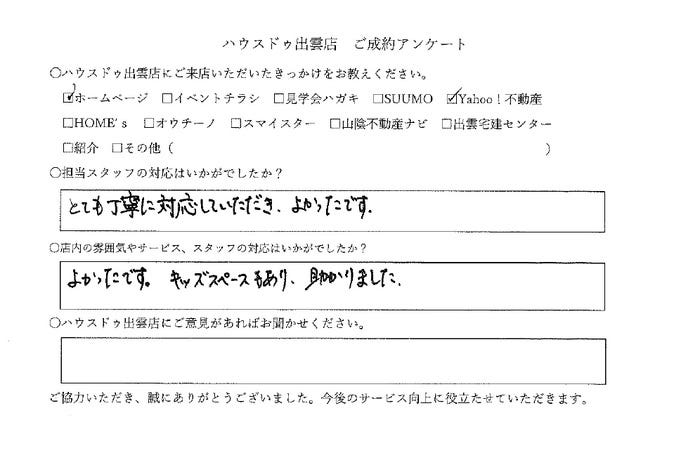 ハウスドゥ出雲店　ご成約アンケート
〇ハウスドゥ出雲店にご来店いただいたきっかけをお教えください。
☑ホームページ　□イベントチラシ　□見学会ハガキ　□SUUMO　☑Yahoo！不動産
□HOME's　□オウチーノ　□スマイスター　□山陰不動産ナビ　□出雲宅建センター
□紹介　□その他（　　　　　　　　　　）
〇担当スタッフの対応はいかがでしたか？
とても丁寧に対応していただき、よかったです。
〇店内の雰囲気やサービス、スタッフの対応はいかがでしたか？
よかったです。キッズスペースもあり、助かりました。
〇ハウスドゥ出雲店にご意見があればお聞かせください。
ご協力いただき、誠にありがとうございました。今後のサービス向上に役立たせていただきます。